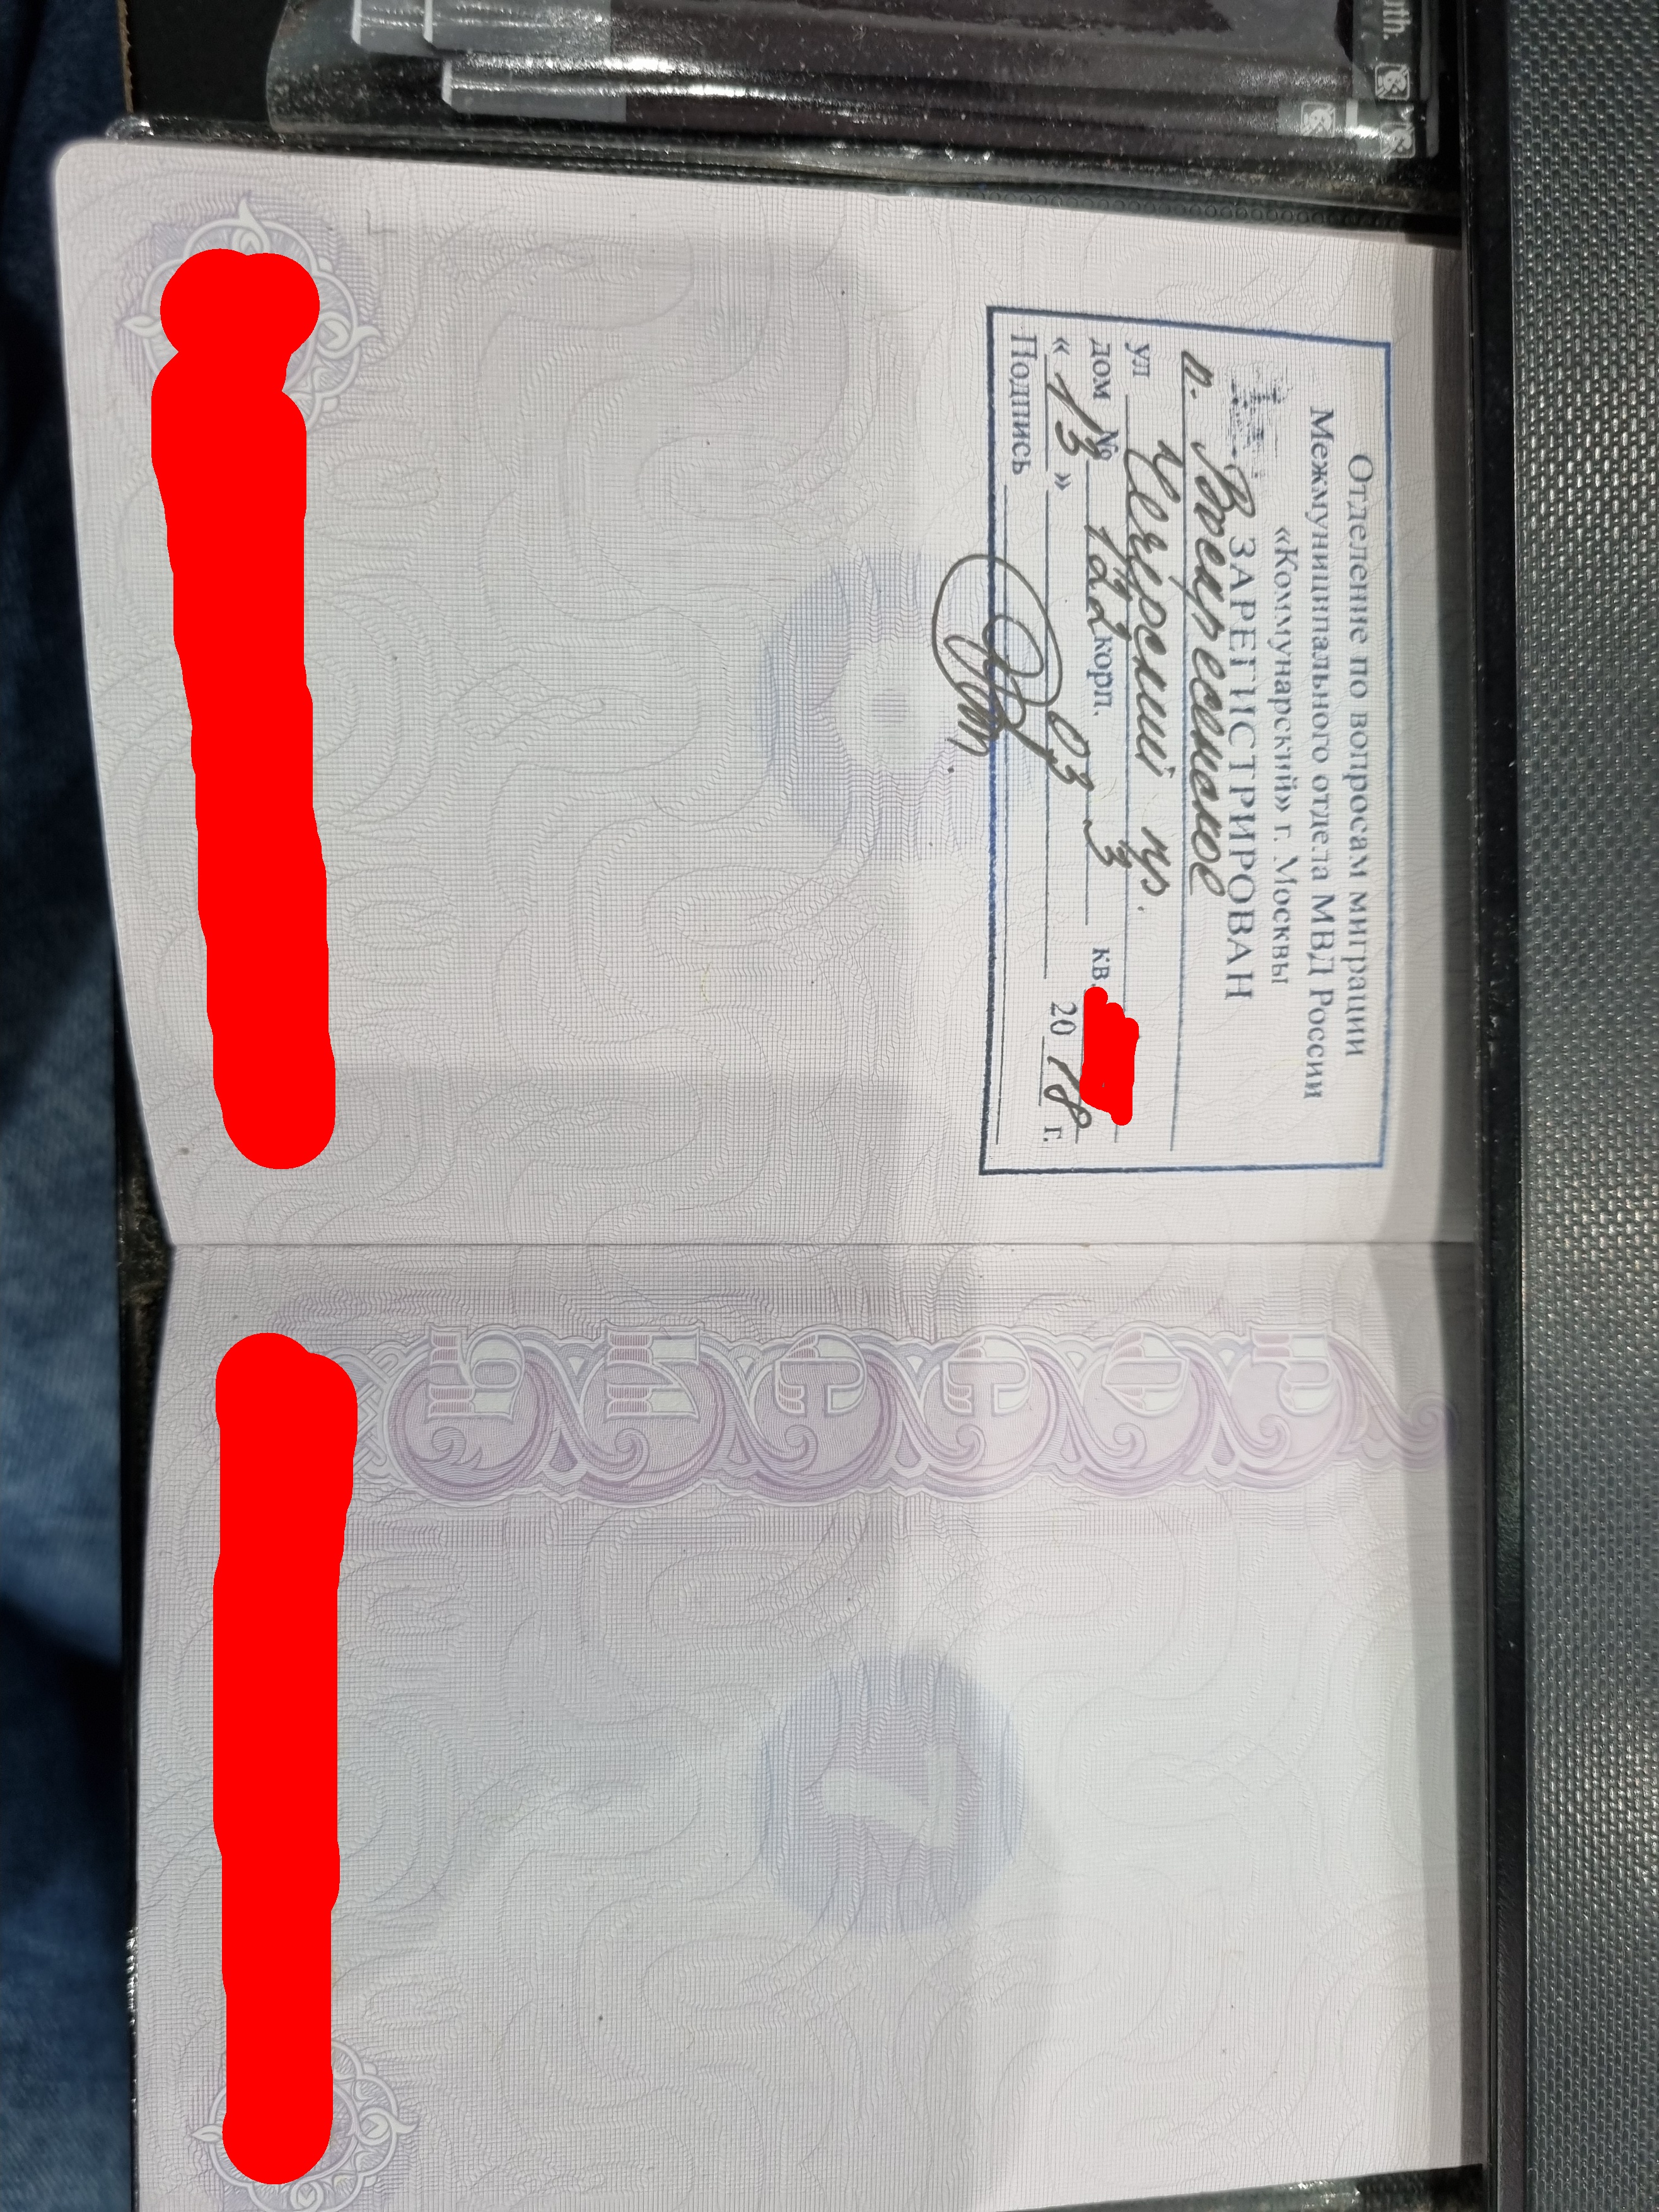 Отделение по вопросам миграции
Межмуниципального отдела МВД России
«Коммунарский» г. Москвы
ЗАРЕГИСТРИРОВАН
п. Воскресенское
ул Чечёрский пр.
дом № 122 корп. 3 кв.
« 13 » 03 2018 г.
Подпись
РОССИЯ
7